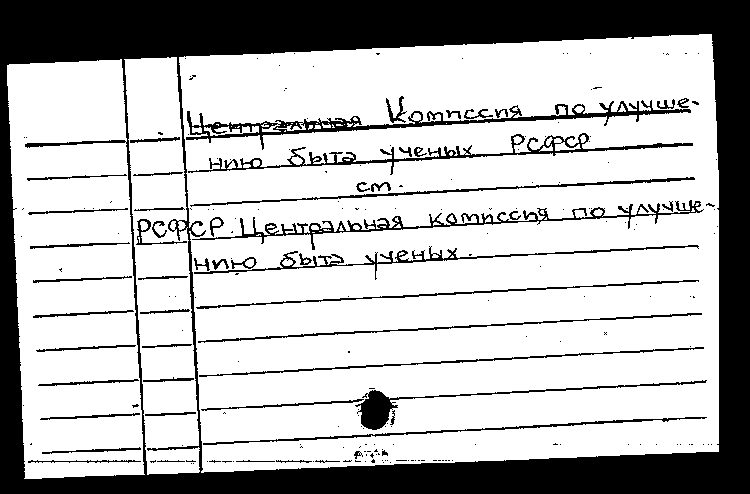 Центральная Комиссия по улучше-
нию быта ученых РСФСР
см.
РСФСР. Центральная комиссия по улучше-
нию быта ученых.